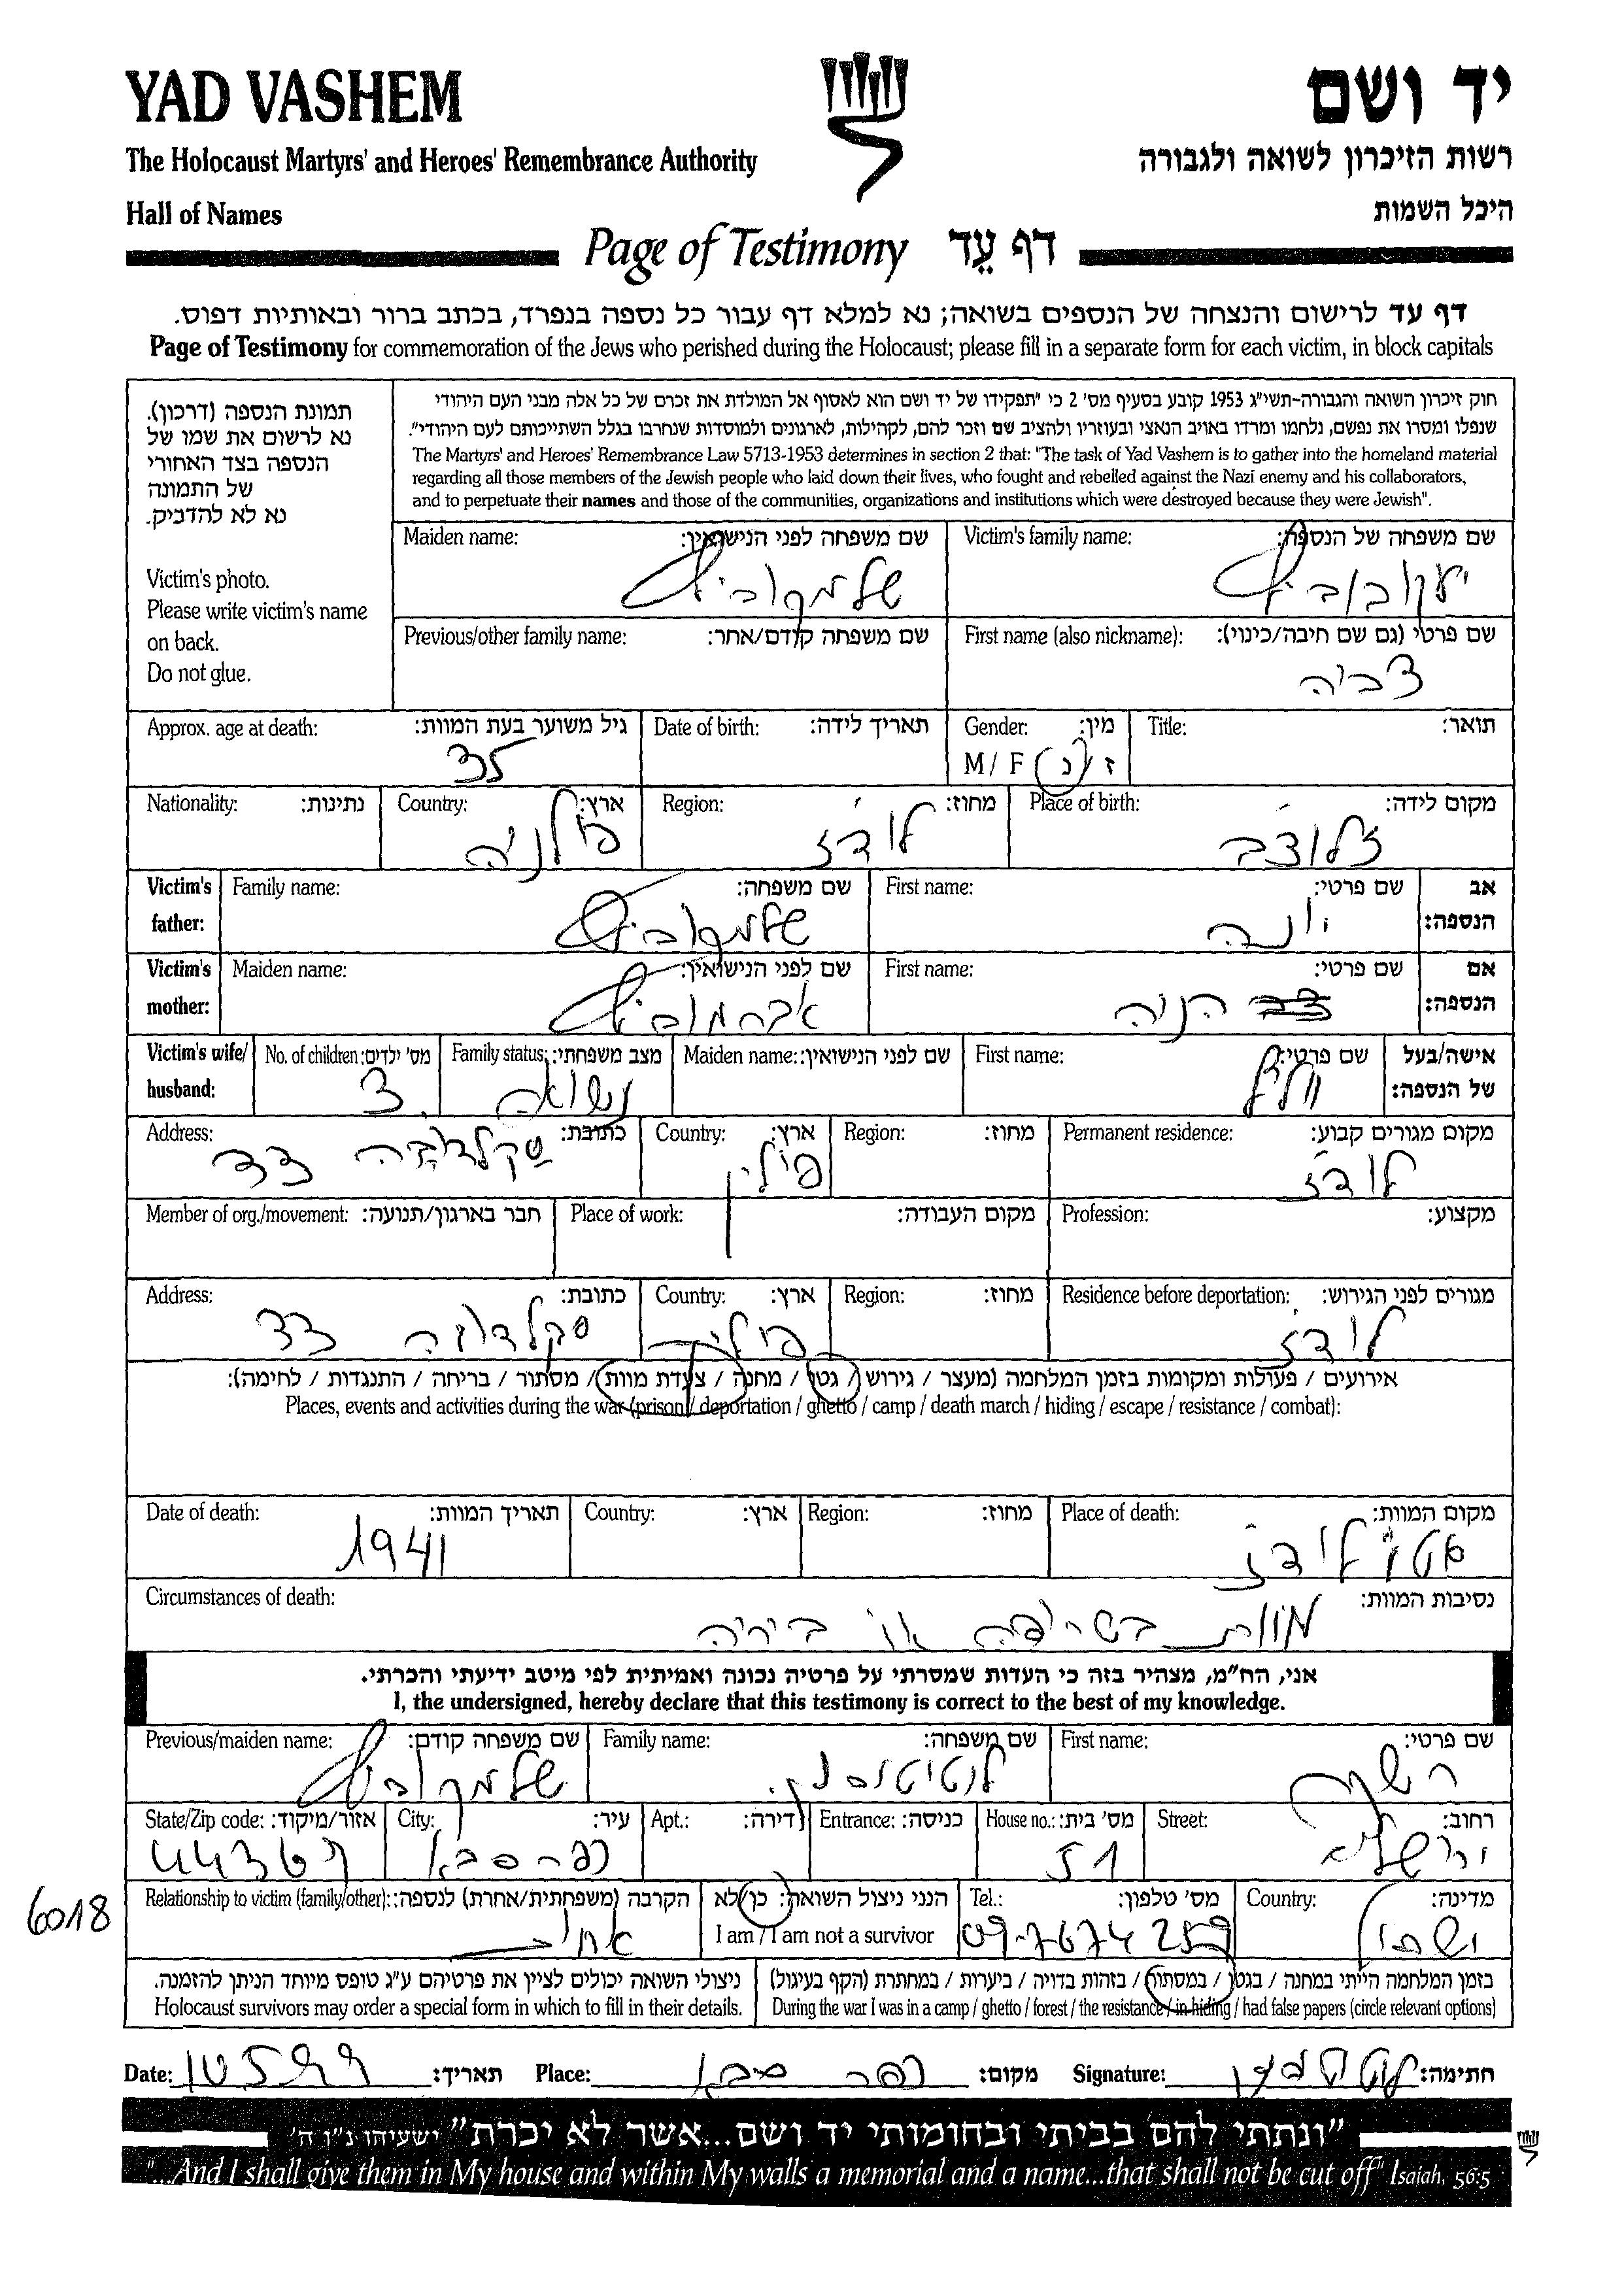 YAD VASHEM יד ושם
The Holocaust Martyrs' and Heroes' Remembrance Authority רשות הזיכרון לשואה ולגבורה
Hall of Names היכל השמות
Page of Testimony דף עֵד
דף עד לרישום והנצחה של הנספים בשואה; נא למלא דף עבור כל נספה בנפרד, בכתב ברור ובאותיות דפוס.
Page of Testimony for commemoration of the Jews who perished during the Holocaust; please fill in a separate form for each victim, in block capitals
תמונת הנספה (דרכון).
נא לרשום את שמו של
הנספה בצד האחורי
של התמונה
נא לא להדביק.
Victim's photo.
Please write victim's name
on back.
Do not glue.
חוק זיכרון השואה והגבורה-תשי"ג 1953 קובע בסעיף מס' 2 כי "תפקידו של יד ושם הוא לאסוף אל המולדת את זכרם של כל אלה מבני העם היהודי
שנפלו ומסרו את נפשם, נלחמו ומרדו באויב הנאצי ובעוזריו ולהציב שם וזכר להם, לקהילות, לארגונים ולמוסדות שנחרבו בגלל השתייכותם לעם היהודי".
The Martyrs' and Heroes' Remembrance Law 5713-1953 determines in section 2 that: "The task of Yad Vashem is to gather into the homeland material
regarding all those members of the Jewish people who laid down their lives, who fought and rebelled against the Nazi enemy and his collaborators,
and to perpetuate their names and those of the communities, organizations and institutions which were destroyed because they were Jewish".
Victim's family name: שם משפחה של הנספה: Maiden name: שם משפחה לפני הנישואין:
יעקובוביץ שלמקוביץ
First name (also nickname): שם פרטי (גם שם חיבה/כינוי): Previous/other family name: שם משפחה קודם/אחר:
צביה
Title: תואר: Gender: מין: Date of birth: תאריך לידה: Approx. age at death: גיל משוער בעת המוות:
M / F ז / נ 35
Place of birth: מקום לידה: Region: מחוז: Country: ארץ: Nationality: נתינות:
זלוצ'ב לודז' פולניה
Victim's father: אב הנספה: First name: שם פרטי: Family name: שם משפחה:
יונה שלמקוביץ
Victim's mother: אם הנספה: First name: שם פרטי: Maiden name: שם לפני הנישואין:
חנה אברהמוביץ
Victim's wife/ husband: אישה/בעל של הנספה: First name: שם פרטי: Maiden name: שם לפני הנישואין: Family status: מצב משפחתי: No. of children: מס' ילדים:
נשואה 3
Permanent residence: מקום מגורים קבוע: Region: מחוז: Country: ארץ: Address: כתובת:
לודז' פולין 33
Profession: מקצוע: Place of work: מקום העבודה: Member of org./movement: חבר בארגון/תנועה:
Residence before deportation: מגורים לפני הגירוש: Region: מחוז: Country: ארץ: Address: כתובת:
לודז' פולין 33
אירועים / פעולות ומקומות בזמן המלחמה (מעצר / גירוש / גטו / מחנה / צעדת מוות / מסתור / בריחה / התנגדות / לחימה):
Places, events and activities during the war (prison / deportation / ghetto / camp / death march / hiding / escape / resistance / combat):
Place of death: מקום המוות: Region: מחוז: Country: ארץ: Date of death: תאריך המוות:
לודז' 1941
Circumstances of death: נסיבות המוות:
מוות בשריפה או ביריה
אני, הח"מ, מצהיר בזה כי העדות שמסרתי על פרטיה נכונה ואמיתית לפי מיטב ידיעתי והכרתי.
I, the undersigned, hereby declare that this testimony is correct to the best of my knowledge.
First name: שם פרטי: Family name: שם משפחה: Previous/maiden name: שם משפחה קודם:
שלמקוביץ
Street: רחוב: House no.: מס' בית: Entrance: כניסה: Apt.: דירה: City: עיר: State/Zip code: אזור/מיקוד:
ירושלים 51 כפר סבא 44369
Country: מדינה: Tel.: מס' טלפון: הנני ניצול השואה: כן/לא Relationship to victim (family/other): הקרבה (משפחתית/אחרת) לנספה:
I am / I am not a survivor
ישראל 09-7674259
6018
בזמן המלחמה הייתי במחנה / בגטו / במסתור / בזהות בדויה / ביערות / במחתרת (הקף בעיגול)
During the war I was in a camp / ghetto / forest / the resistance / in hiding / had false papers (circle relevant options)
ניצולי השואה יכולים לציין את פרטיהם ע"ג טופס מיוחד הניתן להזמנה.
Holocaust survivors may order a special form in which to fill in their details.
Date: תאריך: Place: כפר סבא מקום: Signature: חתימה:
"ונתתי להם בביתי ובחומותי יד ושם...אשר לא יכרת" ישעיהו נ"ו ה'
"...And I shall give them in My house and within My walls a memorial and a name...that shall not be cut off" Isaiah, 56:5